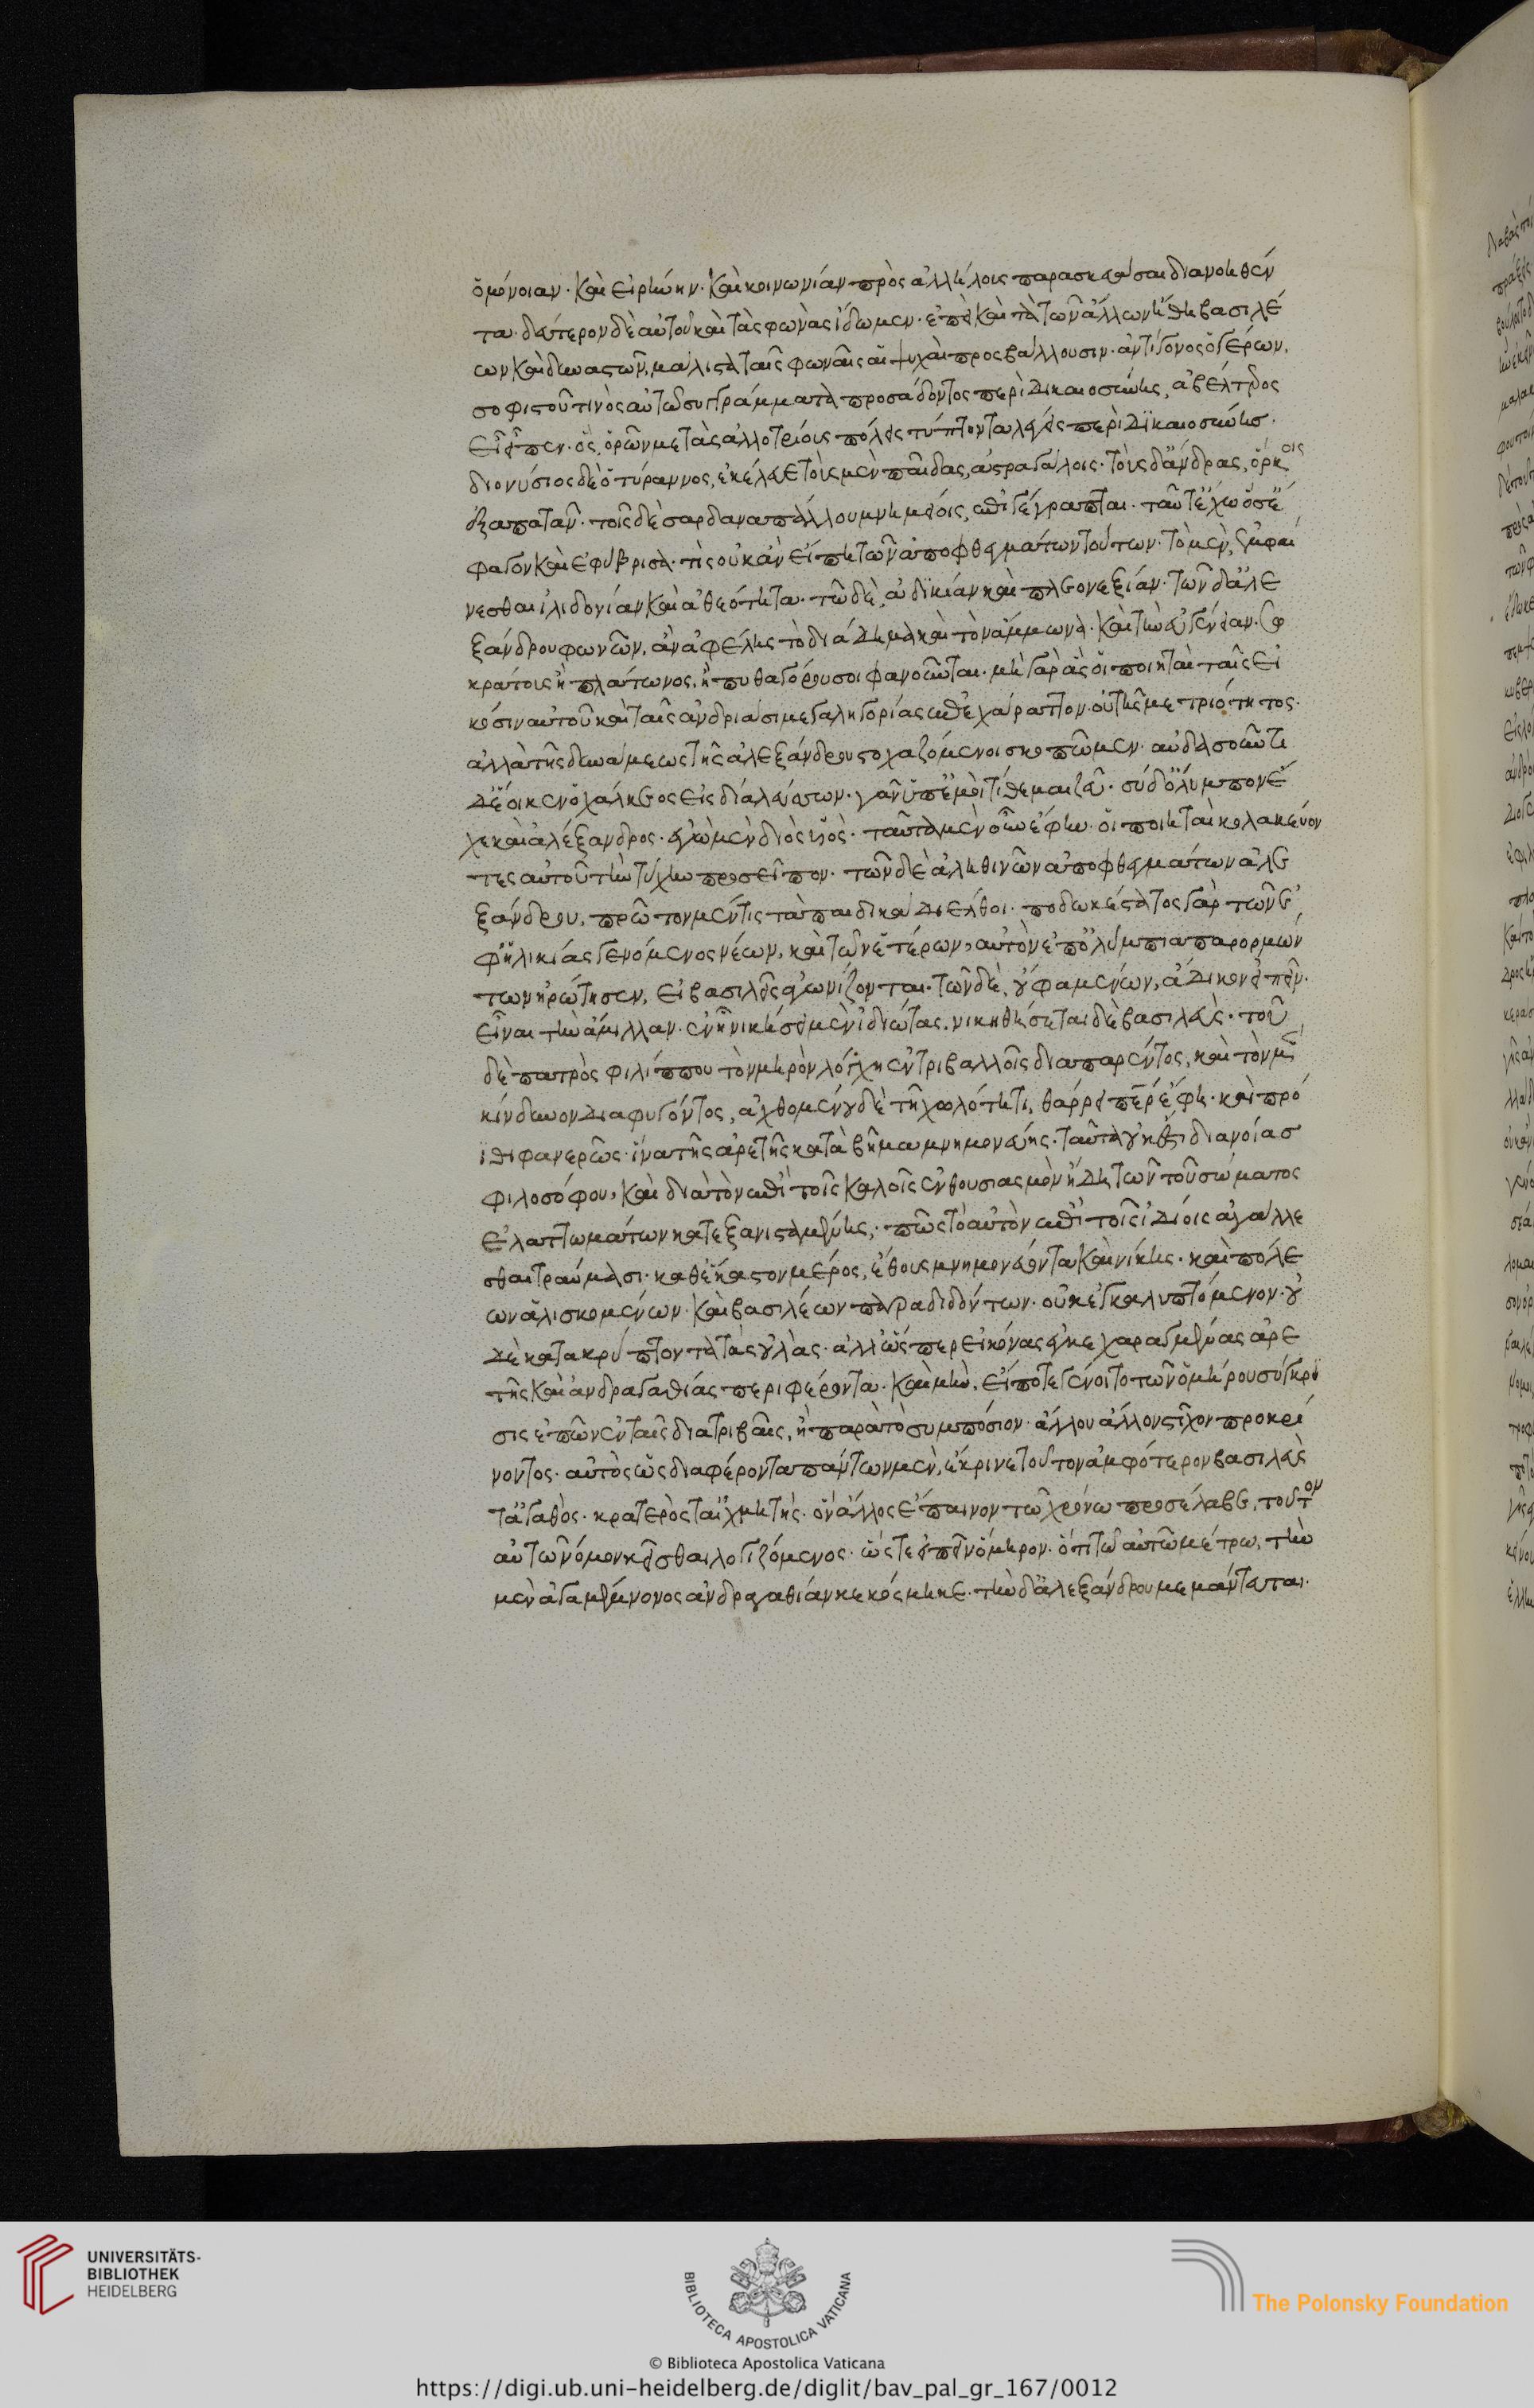 ὁμόνοιαν· καὶ εἰρήνην· καὶ κοινωνίαν πρὸς ἀλλήλους παρασκευάσαι διανοηθέν
τα· δεύτερον δὲ αὐτοῦ καὶ τὰς φωνὰς ἴδωμεν· ἐπεὶ καὶ τὰ τῶν ἄλλων ἤθη βασιλέ
ων καὶ δυναστῶν, μάλιστα ταῖς φωναῖς αἱ ψυχαὶ προσβάλλουσιν· ἀντίγονος ὁ γέρων,
σοφιστοῦ τινὸς αὐτῷ συγγράμματα προσαδόντος περὶ δικαιοσύνης, ἀβέλτερος
εἶ εἶπεν· ὃς, ὁρῶν με τὰς ἀλλοτρίους πόλεις τύπτοντα λέγεις περὶ δικαιοσύνης·
διονύσιος δὲ ὁ τύραννος, ἐκέλευε τοὺς μὲν παῖδας, ἀστραγάλοις· τοὺς δ' ἄνδρας, ὅρκοις
ἐξαπατᾶν· τοῖς δὲ σαρδαναπάλλου μνημείοις, ἐπιγέγραπται· ταῦτ' ἔχω ὅσ' ἔ
φαγον καὶ ἐφύβρισα· τίς οὐκ ἂν εἴπῃ τῶν ἀποφθεγμάτων τούτων· τὸ μὲν, ἐμφαί
νεσθαι φιληδονίαν καὶ ἀθεότητα· τῷ δὲ, ἀδικίαν καὶ πλεονεξίαν· τῶν δ' ἀλε
ξάνδρου φωνῶν, ἂν ἀφέλῃς τὸ διάδημα καὶ τὸν ἄμμωνα· καὶ τὴν εὐγένειαν· σω
κράτους ἢ πλάτωνος, ἢ πυθαγόρου σοι φανοῦνται· μὴ γὰρ ἃς οἱ ποιηταὶ ταῖς εἰ
κόσιν αὐτοῦ καὶ ταῖς ἀνδριάσι μεγαληγορίας ἐπεχάραττον· οὐ τῆς μετριότητος·
ἀλλὰ τῆς δυνάμεως τῆς ἀλεξάνδρου στοχαζόμενοι σκοπῶμεν· αὐδασοῦντι
δ' ἔοικεν ὁ χάλκεος εἰς δία λεύσσων· γᾶν ὑπ' ἐμοὶ τίθεμαι ζεῦ· σὺ δ' ὄλυμπον ἔ
χε καὶ ἀλέξανδρος· ἐγὼ μὲν διὸς υἱὸς· ταῦτα μὲν οὖν ἔφην· οἱ ποιηταὶ κολακεύον
τες αὐτοῦ τὴν τύχην προσεῖπον· τῶν δὲ ἀληθινῶν ἀποφθεγμάτων ἀλε
ξάνδρου, πρῶτον μὲν τις τὰ παιδικὰ διέλθοι· ποδωκέστατος γὰρ τῶν ἐ
φ' ἡλικίας γενόμενος νέων, καὶ τῶν ἑτέρων, αὐτὸν ἐπ' ὀλύμπια παρορμών
των ἠρώτησεν, εἰ βασιλεῖς ἀγωνίζονται· τῶν δὲ, οὐ φαμένων, ἄδικον εἶπεν·
εἶναι τὴν ἅμιλλαν· ἐν ᾗ νικήσει μὲν ἰδιώτας, νικηθήσεται δὲ βασιλεὺς· τοῦ
δὲ πατρὸς φιλίππου τὸν μηρὸν λόγχῃ ἐν τριβαλλοῖς διαπαρέντος, καὶ τὸν μὲν
κίνδυνον διαφυγόντος, ἀχθομένου δὲ τῇ χωλότητι, θάρρει πάτερ ἔφη· καὶ πρό
ϊθι φανερῶς· ἵνα τῆς ἀρετῆς κατὰ βῆμα μνημονεύῃς· ταῦτα οὐκ ἔστι διανοίας
φιλοσόφου, καὶ διὰ τὸν ἐπὶ τοῖς καλοῖς ἐνθουσιασμὸν ἤδη τῶν τοῦ σώματος
ἐλαττωμάτων κατεξανισταμένης· πῶς τὸ αὐτὸν ἐπὶ τοῖς ἰδίοις ἀγάλλε
σθαι τραύμασι· καθ' ἕκαστον μέρος, ἔθους μνημονεύοντα καὶ νίκης· καὶ πόλε
ων ἁλισκομένων· καὶ βασιλέων παραδιδόντων· οὐκ ἐγκαλυπτόμενον· οὐ
δὲ κατακρύπτοντα τὰς οὐλὰς· ἀλλ' ὥσπερ εἰκόνας ἐγκεχαραγμένας ἀρε
τῆς καὶ ἀνδραγαθίας περιφέροντα· καὶ μὴν, εἴ ποτε γένοιτο τῶν ὁμήρου σύγκρι
σις ἐπῶν ἐν ταῖς διατριβαῖς, ἢ παρὰ τὸ συμπόσιον· ἄλλου ἄλλον στίχον προκρί
νοντος· αὐτὸς ὡς διαφέροντα πάντων μὲν, ἔκρινε τοῦτον ἀμφότερον βασιλεὺς
τ' ἀγαθὸς· κρατερὸς τ' αἰχμητής· ὃν ἄλλος ἔπαινον τῷ χρόνῳ προσέλαβε, τοῦτον
αὐτῷ νόμον κεῖσθαι λογιζόμενος· ὥστε εἰπεῖν ὅμηρον· ὅτι τῷ αὐτῷ μέτρῳ, τὴν
μὲν ἀγαμέμνονος ἀνδραγαθίαν κεκόσμηκε· τὴν δ' ἀλεξάνδρου μεμάντευται·
UNIVERSITÄTS-
BIBLIOTHEK
HEIDELBERG
BIBLIOTECA APOSTOLICA VATICANA
The Polonsky Foundation
© Biblioteca Apostolica Vaticana
https://digi.ub.uni-heidelberg.de/diglit/bav_pal_gr_167/0012